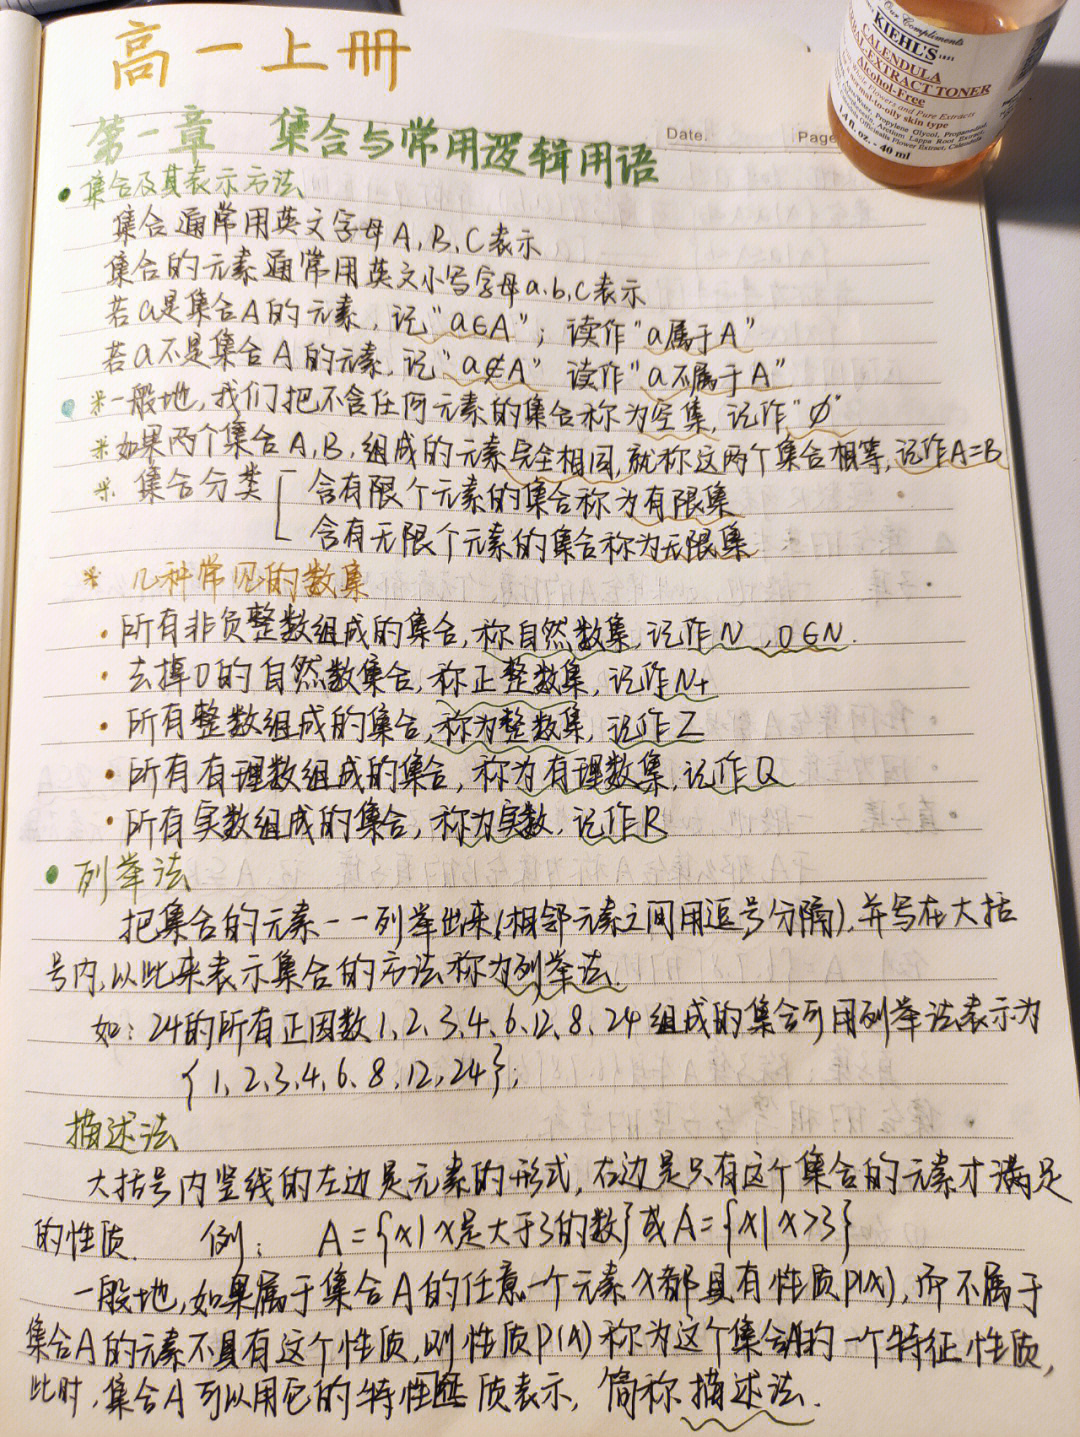 高一上册
第一章 集合与常用逻辑用语
Date.
Page
Our Compliments
KIEHL'S
CALENDULA
HERBAL-EXTRACT TONER
Alcohol-Free
normal-to-oily skin type
1.4 fl. oz. - 40 ml
• 集合及其表示方法
集合通常用英文字母A,B、C表示
集合的元素通常用英文小写字母a.b,c表示
若a是集合A的元素,记"a∈A"; 读作"a属于A"
若a不是集合A的元素,记"a∉A" 读作"a不属于A"
※一般地,我们把不含任何元素的集合称为空集,记作"∅"
※如果两个集合A,B,组成的元素完全相同,就称这两个集合相等,记作A=B
※ 集合分类 含有限个元素的集合称为有限集
含有无限个元素的集合称为无限集
※ 几种常见的数集
• 所有非负整数组成的集合,称自然数集,记作N,0∈N.
• 去掉0的自然数集合,称正整数集,记作N+
• 所有整数组成的集合,称为整数集,记作Z
• 所有有理数组成的集合,称为有理数集,记作Q
• 所有实数组成的集合,称为实数,记作R
• 列举法
把集合的元素一一列举出来(相邻元素之间用逗号分隔),并写在大括
号内,以此来表示集合的方法称为列举法.
如:24的所有正因数1、2、3、4、6、12、8、24组成的集合可用列举法表示为
{1、2、3、4、6、8、12、24};
描述法
大括号内竖线的左边是元素的形式,右边是只有这个集合的元素才满足
的性质. 例: A={x|x是大于3的数}或A={x|x>3}
一般地,如果属于集合A的任意一个元素x都具有性质p(x),而不属于
集合A的元素不具有这个性质,则性质p(x)称为这个集合A的一个特征性质,
此时,集合A可以用它的特性质表示,简称描述法.